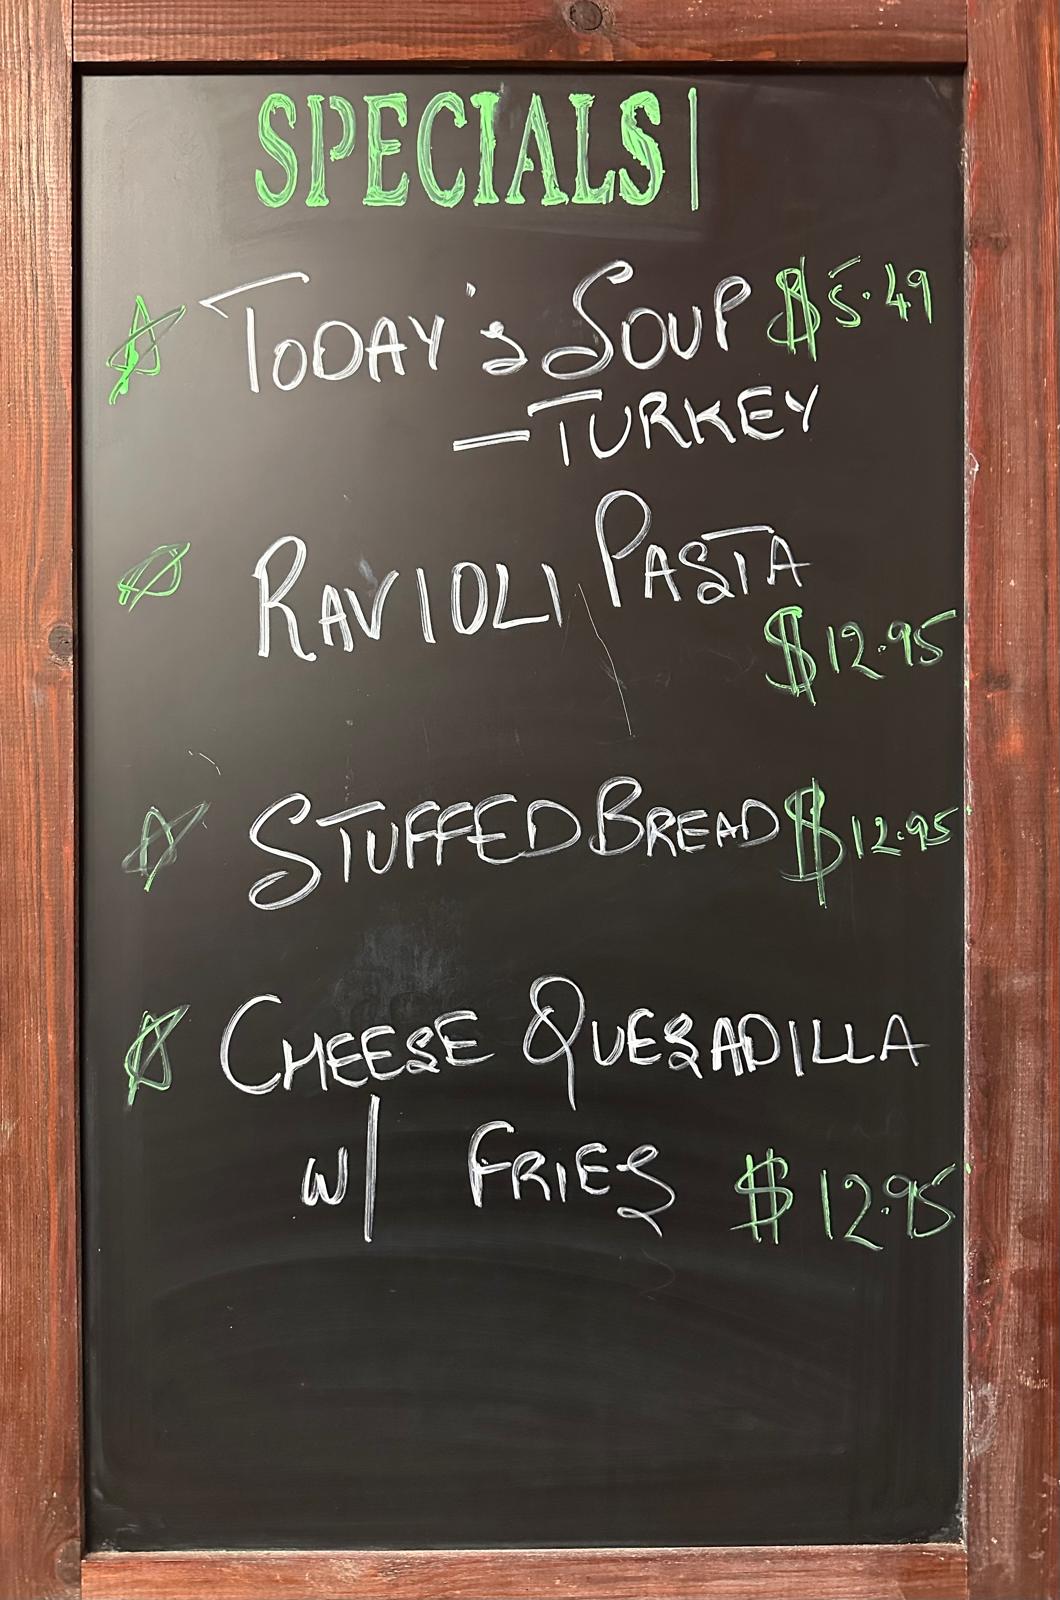 SPECIALS|
TODAY'S SOUP $5.49
—TURKEY
RAVIOLI PASTA
$12.95
STUFFED BREAD $12.95
CHEESE QUESADILLA
W/ FRIES $12.95